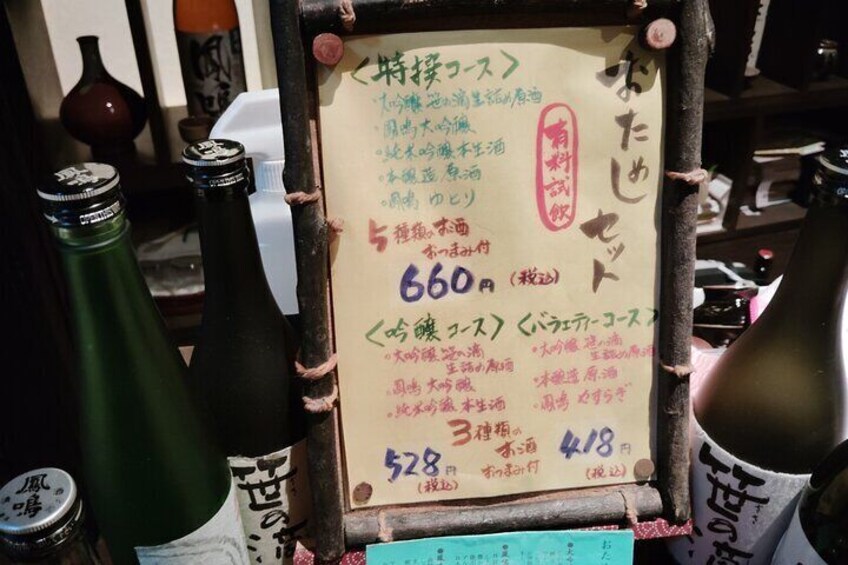 おためしセット
有料試飲
<特撰コース>
・大吟醸 笹の滴 生詰め原酒
・鳳鳴 大吟醸
・純米吟醸 本生酒
・本醸造 原酒
・鳳鳴 ゆとり
5種類のお酒
おつまみ付
660円 (税込)
<吟醸コース>
・大吟醸 笹の滴
生詰め原酒
・鳳鳴 大吟醸
・純米吟醸 本生酒
528円
(税込)
<バラエティーコース>
・大吟醸 笹の滴
生詰め原酒
・本醸造 原酒
・鳳鳴 やすらぎ
3種類の
お酒
おつまみ付
418円
(税込)
鳳鳴
笹の滴
笹の滴
鳳鳴